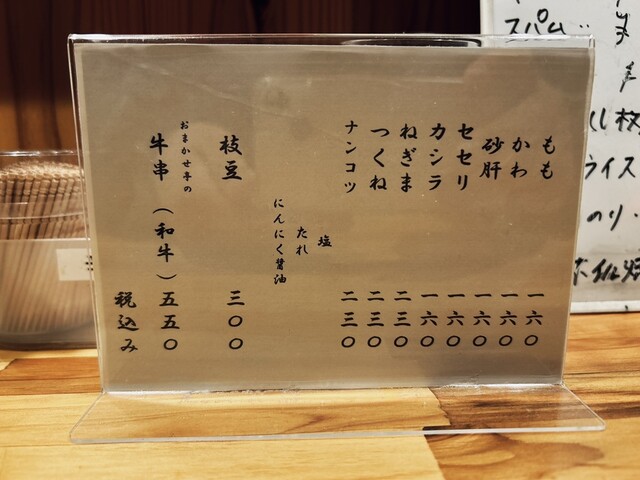 もも 一六〇
かわ 一六〇
砂肝 一六〇
セセリ 一六〇
カシラ 一六〇
ねぎま 二三〇
つくね 二三〇
ナンコツ 二三〇
塩
たれ
にんにく醤油
枝豆 三〇〇
おまかせ亭の
牛串（和牛）五五〇
税込み
スパム
枚
ライス
のり